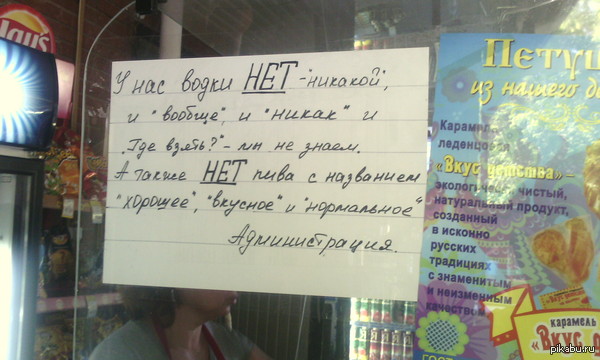 Lay's
У нас водки НЕТ - "никакой",
и "вообще", и "никак" и
"Где взять?" - мы не знаем.
А также НЕТ пива с названием
"хорошее", "вкусное" и "нормальное"
Администрация.
ПЕТУШ
из нашего де
Карамель
леденцовая
«Вкус детства» -
экологически чистый,
натуральный продукт,
созданный
в исконно
русских
традициях
с знаменитым
и неизменным
качеством
ГОСТ
карамель
«Вкус
pikabu.ru